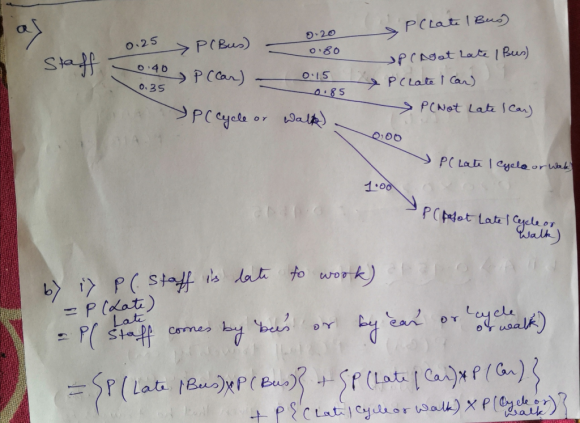 a)
0.25 P(Bus) 0.20 P(Late | Bus)
0.80 P(Not Late | Bus)
Staff 0.40 P(Car) 0.15 P(Late | Car)
0.35 0.85 P(Not Late | Car)
P(Cycle or Walk) 0.00
P(Late | Cycle or Walk)
1.00
P(Not Late | Cycle or
Walk)
b) i) P( Staff is late to work)
= P(Late)
Late
= P( Staff comes by 'bus' or by 'car' or 'cycle
or walk')
= {P(Late | Bus) x P(Bus)} + {P(Late | Car) x P(Car)}
+ P{(Late | Cycle or Walk) x P(Cycle or
Walk)}